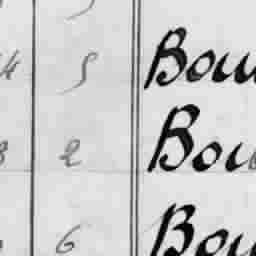 4 5 Bou
8 2 Bou
6 Bou